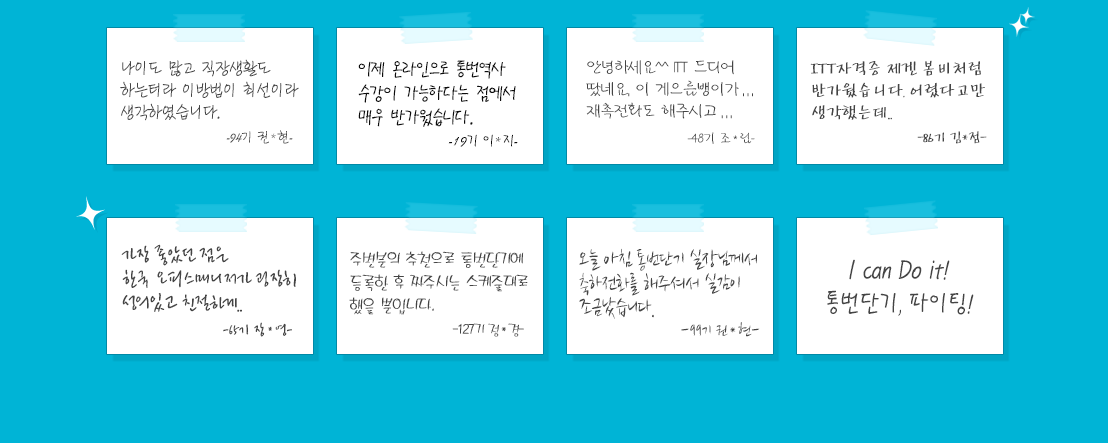 나이도 많고 직장생활도
하는터라 이방법이 최선이라
생각하였습니다.
-94기 권*현-
이제 온라인으로 통번역사
수강이 가능하다는 점에서
매우 반가웠습니다.
-19기 이*지-
안녕하세요^^ ITT 드디어
땄네요. 이 게으름뱅이가...
재촉전화도 해주시고...
-48기 조*런-
ITT자격증 제겐 봄 비처럼
반가웠습니다. 어렵다고만
생각했는데..
-86기 김*점-
가장 좋았던 점은
한국 오피스매니저가 굉장히
성의있고 친절하게..
-65기 장*영-
주변분의 추천으로 통번단기에
등록한 후 짜주시는 스케줄대로
했을 뿐입니다.
-127기 정*강-
오늘 아침 통번단기 실장님께서
축하전화를 해주셔서 실감이
조금났습니다.
-99기 권*현-
I can Do it!
통번단기, 파이팅!